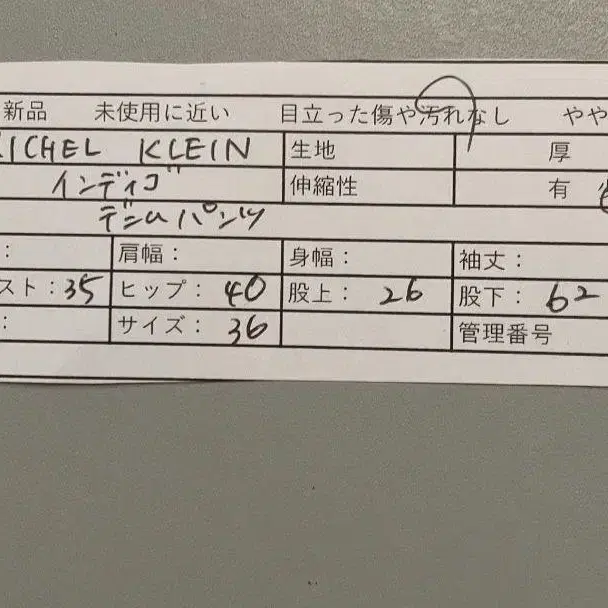 新品 未使用に近い 目立った傷や汚れなし やや
ICHEL KLEIN 生地 厚
インディゴ 伸縮性 有
デニムパンツ
： 肩幅： 身幅： 袖丈：
スト：35 ヒップ： 40 股上： 26 股下： 62
： サイズ： 36 管理番号